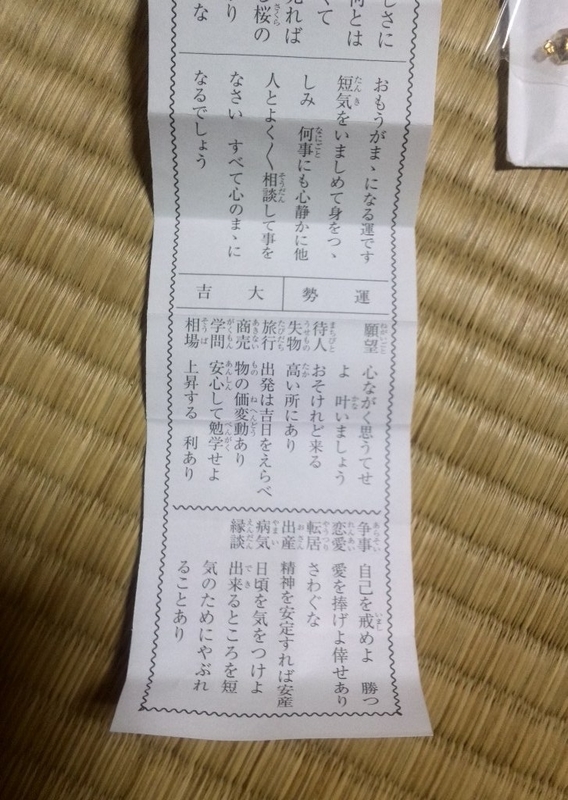 しさに
何とは
くて
見れば
桜の
り
な
おもうがまゝになる運です
短気をいましめて身をつゝ
しみ　何事にも心静かに他
人とよく〱相談して事を
なさい　すべて心のまゝに
なるでしょう
運勢　大吉
願望　心ながく思うてせ
よ　叶いましょう
待人　おそけれど来る
失物　高い所にあり
旅行　出発は吉日をえらべ
商売　物の価変動あり
学問　安心して勉学せよ
相場　上昇する　利あり
争事　自己を戒めよ　勝つ
恋愛　愛を捧げよ倖せあり
転居　さわぐな
出産　精神を安定すれば安産
病気　日頃を気をつけよ
縁談　出来るところを短
気のためにやぶれ
ることあり